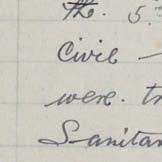 The. 5.
Civil
were. tr
Sanitar